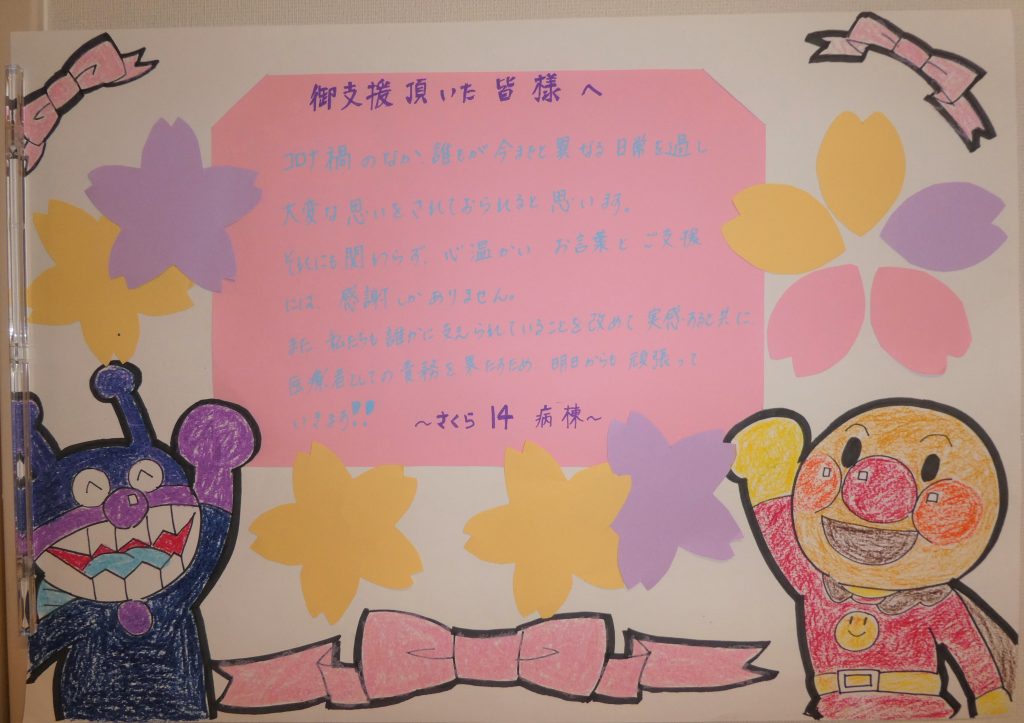 御支援頂いた皆様へ
コロナ禍のなか、誰もが今までと異なる日常を過し
大変な思いをされておられると思います。
それにも関わらず、心温かいお言葉とご支援
には、感謝しかありません。
また、私たちも誰かに支えられていることを改めて実感すると共に、
医療者としての責務を果たすため、明日からも頑張って
いきます!!
〜さくら14病棟〜